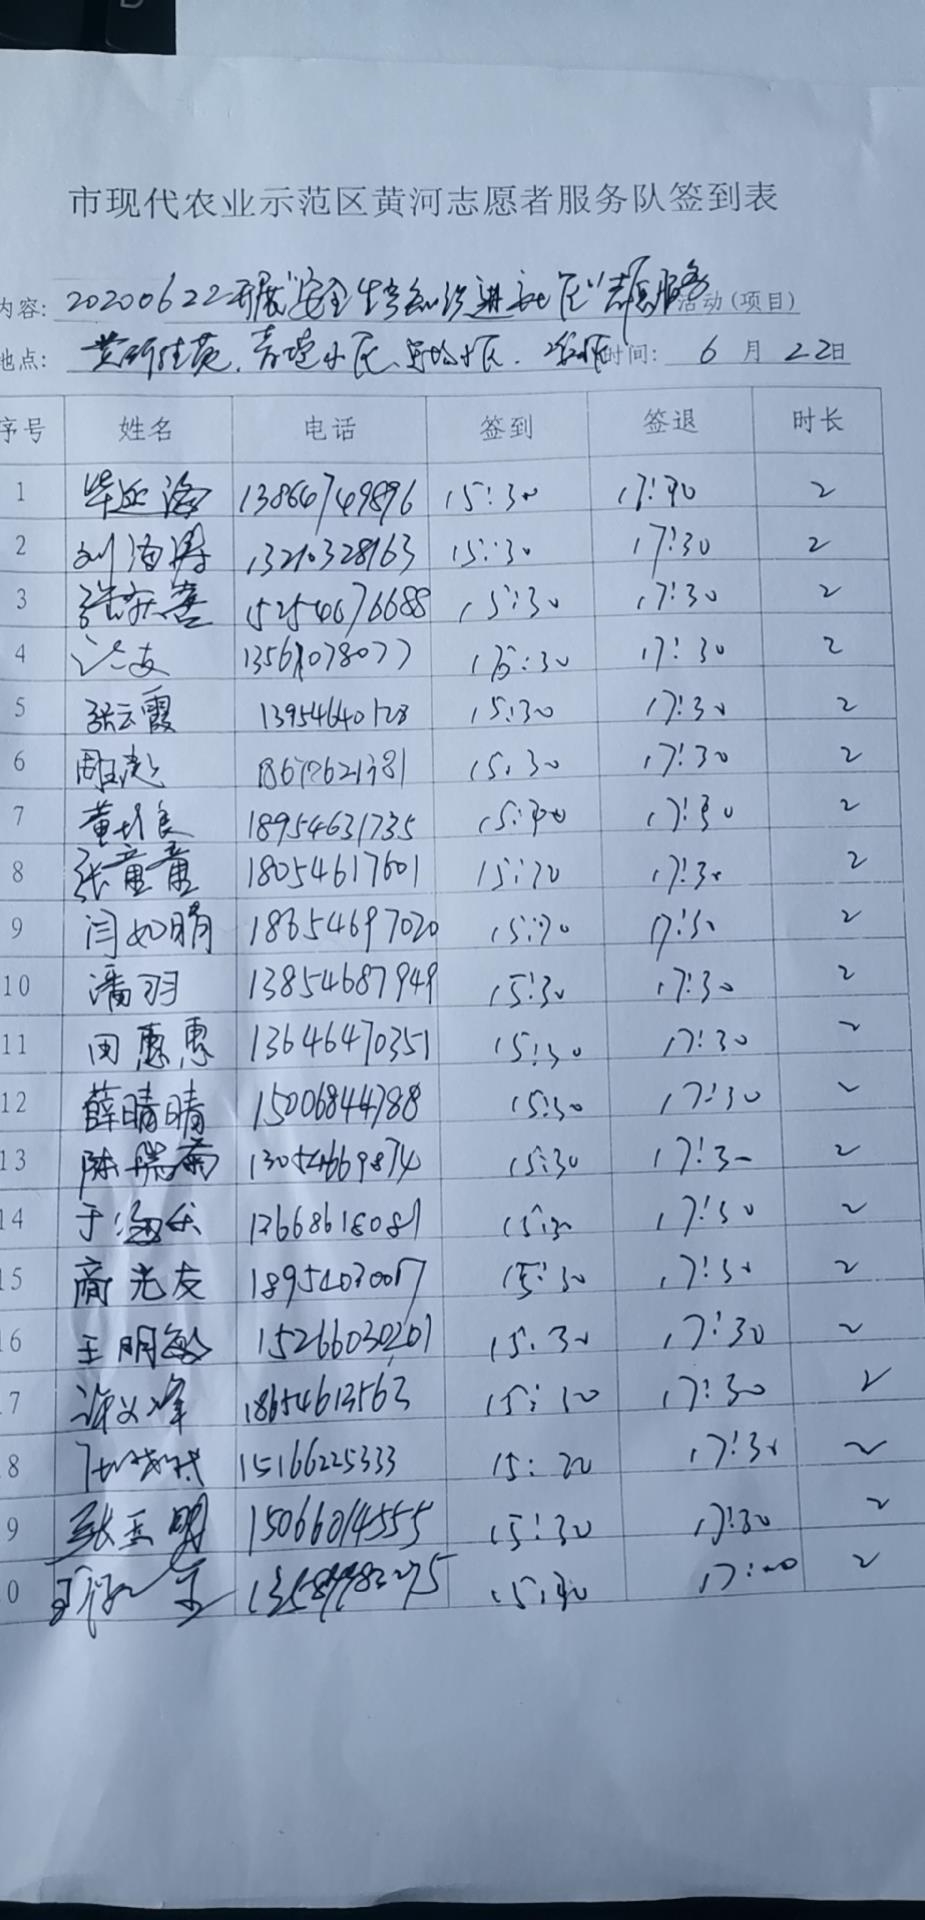 市现代农业示范区黄河志愿者服务队签到表
内容: 20200622开展"安全生产知识进社区"志愿服务活动(项目)
地点: 小区、小区. 时间: 6月22日
序号 姓名 电话 签到 签退 时长
1 海 13864749896 15:30 17:30 2
2 刘海涛 13210328163 15:30 17:30 2
3 张庆喜 15254676688 15:30 17:30 2
4 友 15:30 17:30 2
5 张云霞 13954640128 15:30 17:30 2
6 周 15:30 17:30 2
7 黄 良 18954631735 15:30 17:30 2
8 张童童 18054617601 15:30 17:30 2
9 闫如晴 18654697020 15:30 17:30 2
10 潘羽 13854687949 15:30 17:30 2
11 田惠惠 13646470351 15:30 17:30 2
12 薛晴晴 15006844788 15:30 17:30 2
13 陈瑞菊 13054669874 15:30 17:30 2
14 于海 15:30 17:30 2
15 商光友 15:30 17:30 2
16 王明敏 15266030201 15:30 17:30 2
7 峰 18654613563 15:30 17:30 2
8 15166225333 15:30 17:30 2
9 张玉明 15066014555 15:30 17:30 2
0 15:30 2